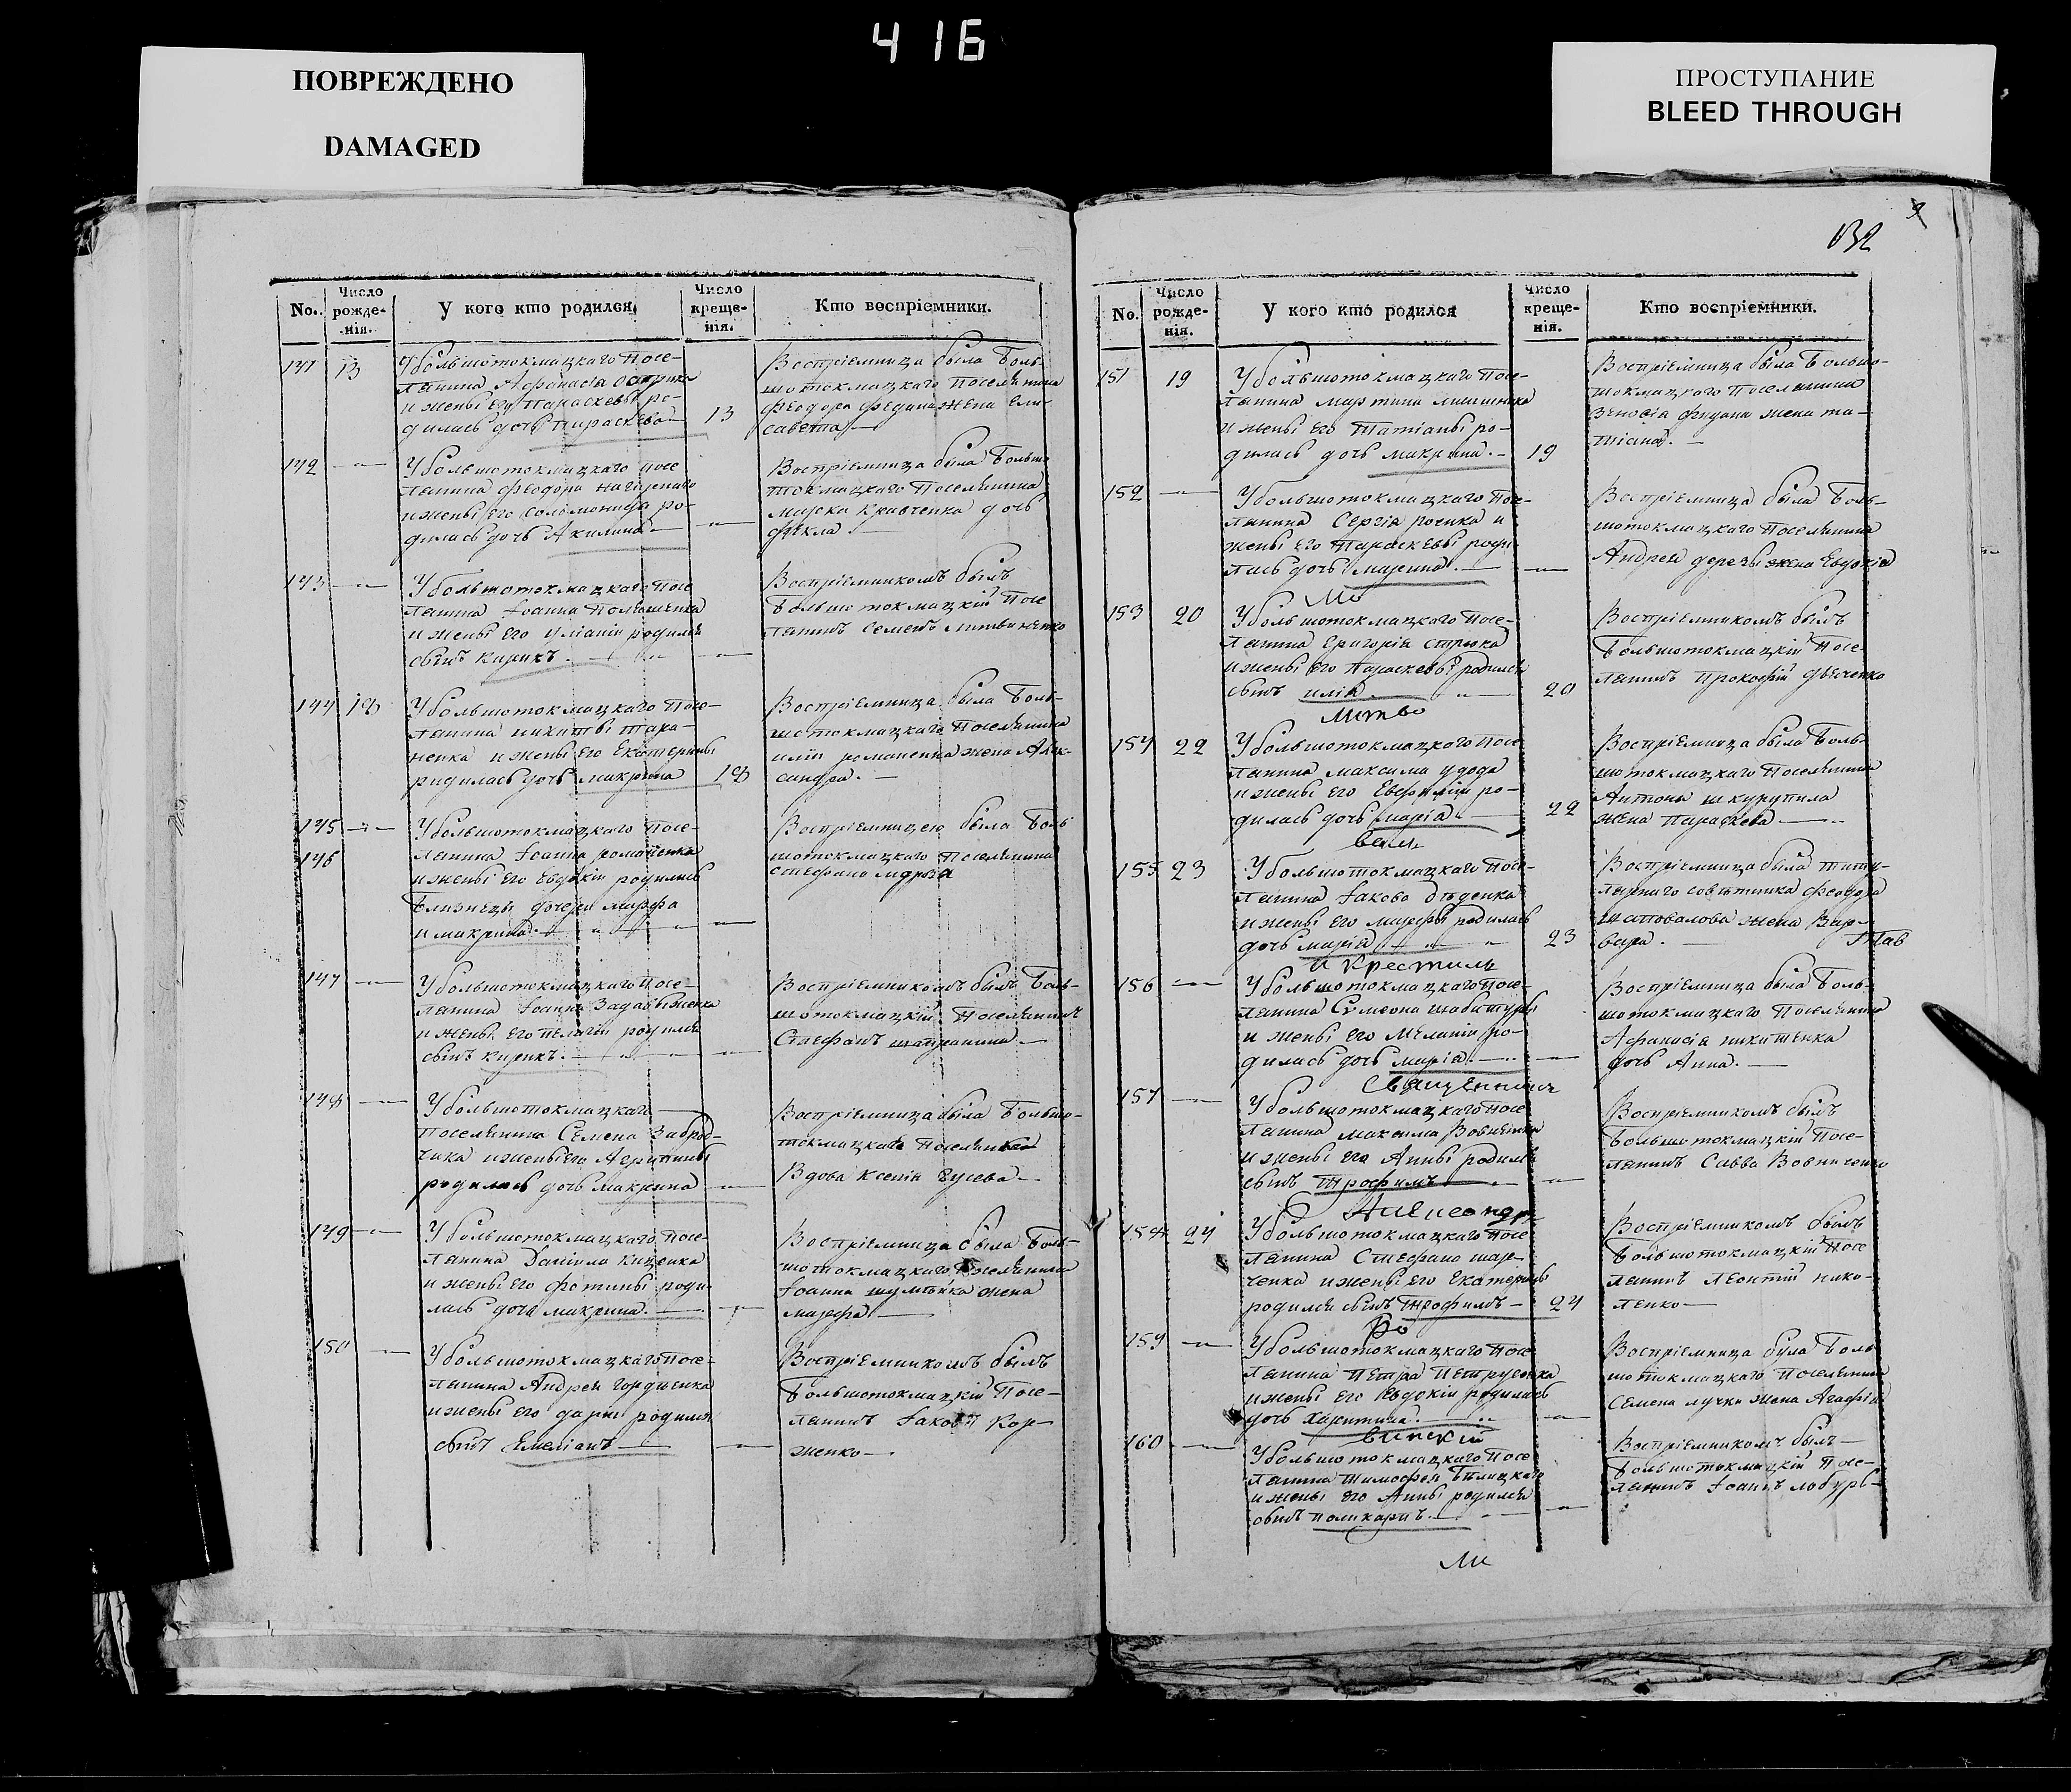 416
ПОВРЕЖДЕНО
DAMAGED
ПРОСТУПАНИЕ
BLEED THROUGH
No. Число рожде-нія. У кого кто родился. Число креще-нія. Кто воспріемники.
141 13
Убольшотокмацкаго посе-
лянина Афонасія
и жены его Параскевы ро-
дилась дочь Параскева 13
Воспріемница была Боль-
шотокмацкаго Поселянина
Феодора жена Ели-
савета
142
Убольшотокмацкаго посе
лянина Феодора
и жены его Соломониды ро-
дилась дочь Акилина
Воспріемница была Большо
токмацкаго Поселянина
Марка Кравченка дочь
Фекла.
143
Убольшотокмацкаго Посе
лянина Іоанна
и жены его Уліаніи родился
сынъ Кирикъ
Воспріемникомъ былъ
Большотокмацкій Посе
лянинъ Семенъ Литвиненко
144 18
Убольшотокмацкаго Посе-
лянина никиты тара-
ненка и жены его Екатерины
родилась дочь макрина 18
Воспріемница была Боль-
шотокмацкаго Поселянина
иліи романенка жена Алек-
сандра.
145
146
Убольшотокмацкаго Посе-
лянина Іоанна романенка
и жены его Евдокіи родились
близнецы дочери марфа
и макрина.
Воспріемницею была Боль
шотокмацкаго Поселянина
Стефана
147
Убольшотокмацкаго Посе-
лянина Іоанна
и жены его пелагіи родился
сынъ кирикъ.
Воспріемникомъ былъ Боль-
шотокмацкій Поселянинъ
Стефанъ
148
Убольшотокмацкаго
поселянина Семена Заброд-
чика и жены его Агрипины
родилась дочь макрина
Воспріемница была Большо-
токмацкаго
Вдова Ксенія Гусева
149
Убольшотокмацкаго Посе-
лянина Даніила Куценка
и жены его фотины роди-
лась дочь макрина.
Воспріемница была Боль-
шотокмацкаго Поселянина
Іоанна жена
марфа
150
Убольшотокмацкаго Посе-
лянина Андрея Гордіенка
и жены его даріи родился
сынъ Емеліанъ
Воспріемникомъ былъ
Большотокмацкій Посе-
лянинъ Іаковъ Кор-
женко
132
No. Число рожде-нія. У кого кто родился Число креще-нія. Кто воспріемники.
151 19
Убольшотокмацкаго Посе-
лянина мартина
и жены его Татіаны ро-
дилась дочь макрина. 19
Воспріемница была Большо-
токмацкаго Поселянина
жена та-
тіана.
152
Убольшотокмацкаго Посе-
лянина Сергія и
жены его Параскевы роди
лась дочь марина.
Воспріемница была Боль-
шотокмацкаго Поселянина
Андрея жена Евдокія
Мо
153 20
Убольшотокмацкаго Посе-
лянина Григорія
и жены его Параскевы родился
сынъ илія. 20
Воспріемникомъ былъ
Большотокмацкій Посе
лянинъ Прокофій
литво
154 22
Убольшотокмацкаго Посе
лянина максима удода
и жены его Евфиміи ро-
дилась дочь марія. 22
Воспріемница была Боль
шотокмацкаго Поселянина
Антона шкурупила
жена Параскева
вали
155 23
Убольшотокмацкаго Посе-
лянина Іакова
и жены его марфы родилась
дочь марія 23
Воспріемница была титу-
лярнаго совѣтника Феодора
шаповалова жена Вар-
вара.
Тав
и Крестили
156
Убольшотокмацкаго посе-
лянина Сумеона
и жены его Меланіи ро-
дилась дочь марія.
Воспріемница была Боль-
шотокмацкаго Поселянина
Афанасія никитенка
дочь Анна.
Священникъ
157
Убольшотокмацкаго Посе
лянина максима
и жены его Анны родился
сынъ Трофимъ
Воспріемникомъ былъ
Большотокмацкій Посе-
лянинъ Савва Вовниченко
Александръ
158 24
Убольшотокмацкаго Посе
лянина Стефана мар-
ченка и жены его Екатерины
родился сынъ Трофимъ 24
Воспріемникомъ былъ
Большотокмацкій Посе
лянинъ Леонтій нико-
ленко
Ро
159
Убольшотокмацкаго Посе
лянина Петра Петрусенка
и жены его Евдокіи родилась
дочь Харитина.
Воспріемница была Боль
шотокмацкаго Поселянина
Семена жена Агафія
160
Убольшотокмацкаго Посе
лянина Тимофея Билецкаго
и жены его Анны родился
сынъ поликарпъ.
Воспріемникомъ былъ
Большотокмацкій Посе-
лянинъ Іоаннъ
Ми